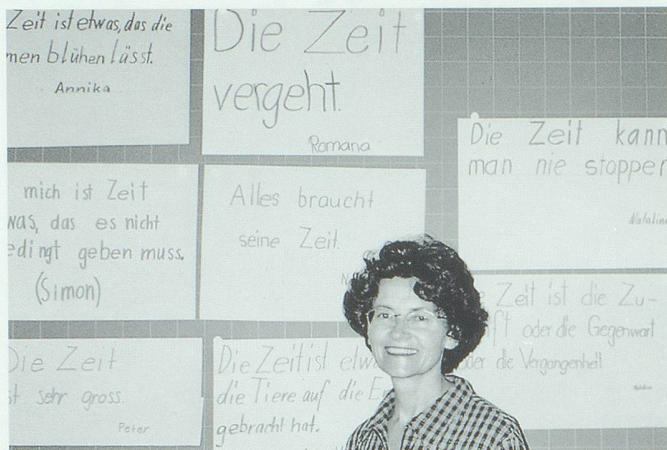 Zeit ist etwas, das die
men blühen lässt.
Annika
Die Zeit
vergeht.
Romana
Die Zeit kann
man nie stoppen
Natalina
mich ist Zeit
was, das es nicht
edingt geben muss.
(Simon)
Alles braucht
seine Zeit.
Zeit ist die Zu-
ft oder die Gegenwart
oder die Vergangenheit
Die Zeit
st sehr gross.
Peter
Die Zeit ist etw
die Tiere auf die E
gebracht hat.